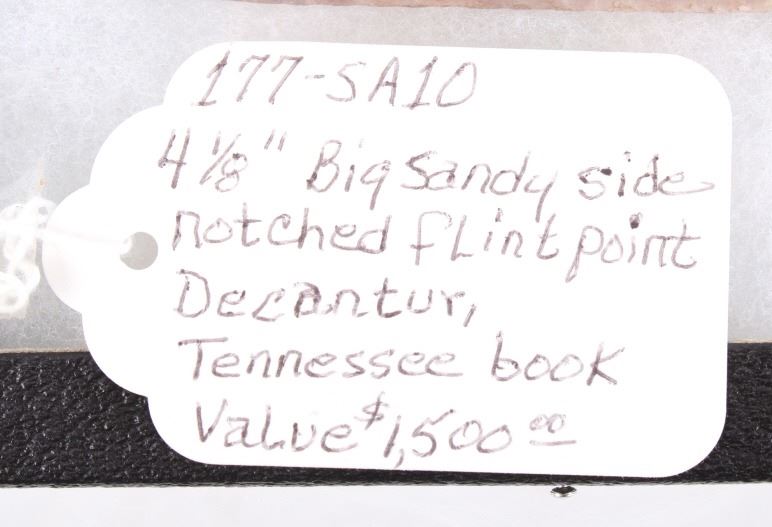 177-SA10
4 1/8" Big Sandy side
notched flint point
Decantur,
Tennessee book
Value $1,500.00